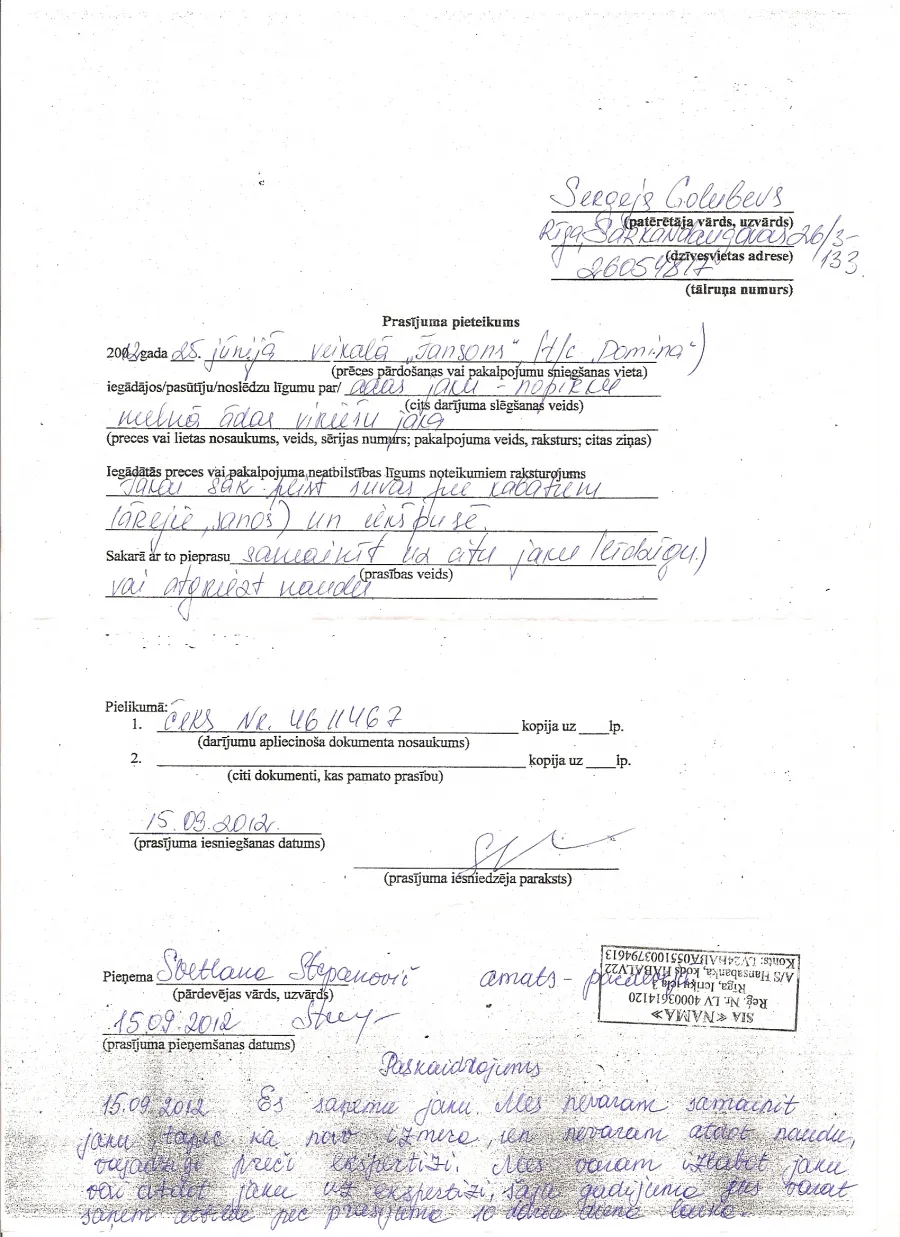 Sergejs Golubevs
(patērētāja vārds, uzvārds)
Rīga, Sarkandaugavas 26/3-
133
(dzīvesvietas adrese)
26054817
(tālruņa numurs)
Prasījuma pieteikums
2012 gada 25. jūnijā veikalā „Jansons" (t/c „Domina")
(prēces pārdošanas vai pakalpojumu sniegšanas vieta)
iegādājos/pasūtīju/noslēdzu līgumu par/ ādas jaku - nopirku
(cits darījuma slēgšanas veids)
melnā ādas vīriešu jaka
(preces vai lietas nosaukums, veids, sērijas numurs; pakalpojuma veids, raksturs; citas ziņas)
Iegādātās preces vai pakalpojuma neatbilstības līgums noteikumiem raksturojums
Jakai sāk plīst šuvēs pie kabatiem
(ārējie, sānos) un iekšpusē.
Sakarā ar to pieprasu samainīt uz citu jaku (līdzīgu)
(prasības veids)
vai atgriezt naudu
Pielikumā:
1. čeks Nr. 4611467 kopija uz ____lp.
(darījumu apliecinoša dokumenta nosaukums)
2. kopija uz ____lp.
(citi dokumenti, kas pamato prasību)
15.09.2012.
(prasījuma iesniegšanas datums)
(prasījuma iesniedzēja paraksts)
Pieņema Svetlana Stepanovič amats - pārdevēja
(pārdevējas vārds, uzvārds)
15.09.2012
(prasījuma pieņemšanas datums)
SIA «NAMA»
Reģ. Nr. LV 40003614120
Rīga, Ieriķu iela 3
A/S Hansabanka, kods HABALV22
Konts: LV24HABA0551003794613
Paskaidrojums
15.09.2012 Es saņēmu jaku. Mēs nevaram samainīt
jaku, tapēc ka nav izmēra, un nevaram atdot naudu,
vajadzīgi preči ekspertīzi. Mēs varam izlabot jaku
vai atdot jaku uz ekspertīzi, šajā gadījumā jūs varat
saņemt atbilde pēc prasījuma 10 darba dienu laukā.